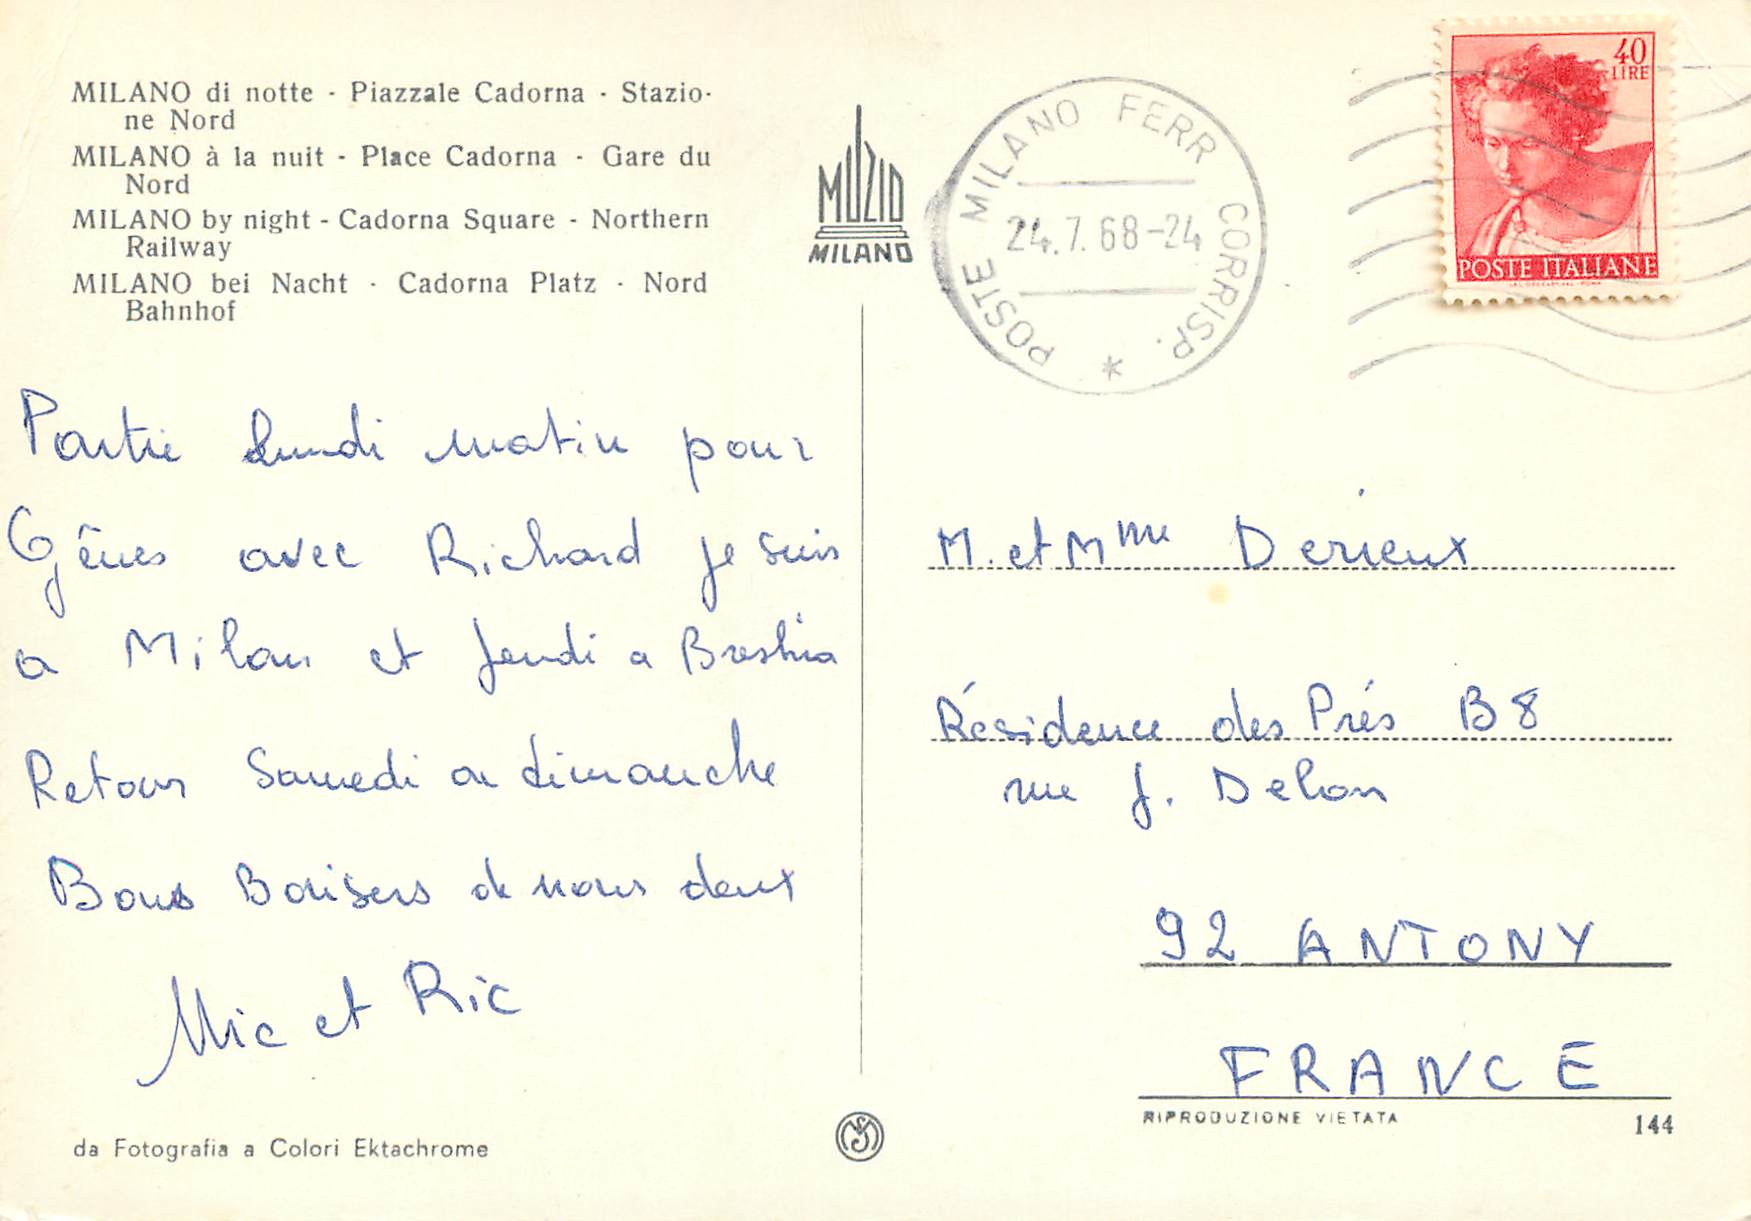 MILANO di notte - Piazzale Cadorna - Stazio-
ne Nord
MILANO à la nuit - Place Cadorna - Gare du
Nord
MILANO by night - Cadorna Square - Northern
Railway
MILANO bei Nacht - Cadorna Platz - Nord
Bahnhof
MUZIO
MILANO
POSTE MILANO FERR CORRISP. *
24.7.68-24
40
LIRE
POSTE ITALIANE
Partie Lundi matin pour
Gênes avec Richard je suis
a Milan et Jeudi a Breshia
Retour Samedi ou dimanche
Bons Baisers de nous deux
Mic et Ric
M. et Mme Derieux
Résidence des Prés B8
rue J. Delon
92 ANTONY
FRANCE
RIPRODUZIONE VIETATA
144
da Fotografia a Colori Ektachrome